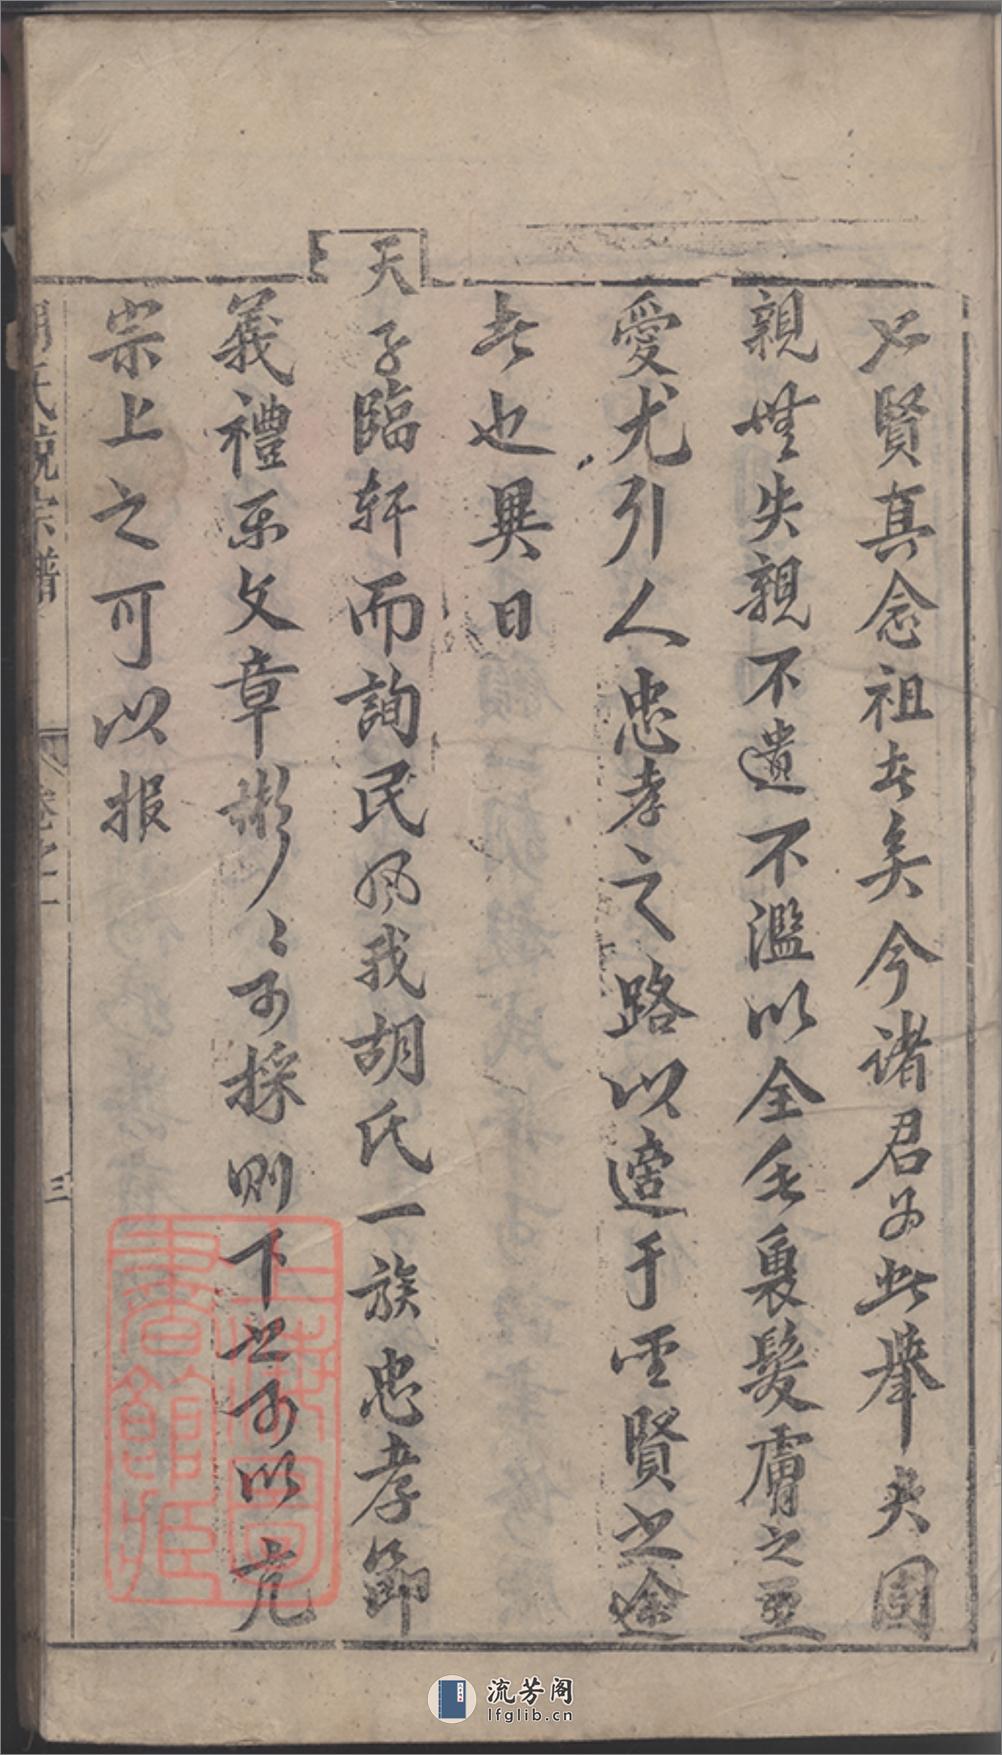 必賢真念祖者矣今諸君子此舉夫固
親無失親不遺不濫以全毛裏髮膚之至
愛尤引人忠孝之路以適于聖賢之途
者也異日
天子臨軒而詢民風我胡氏一族忠孝節
義禮樂文章彬彬可採則下之可以亢
宗上之可以報
胡氏統宗譜
卷之一
三
上海圖
書館藏
流芳阁
lfglib.cn